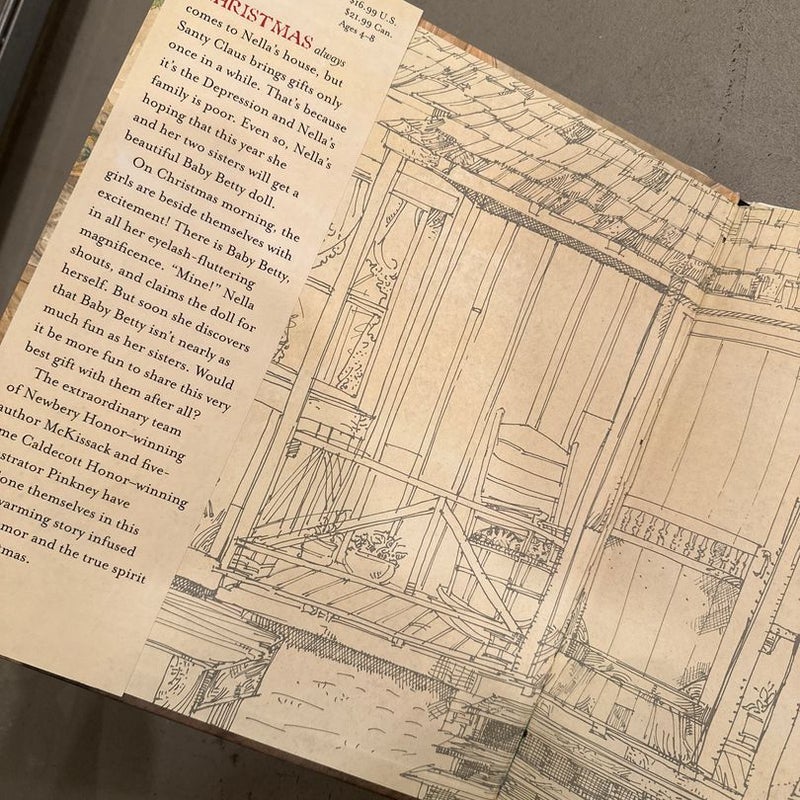 $16.99 U.S.
$21.99 Can.
Ages 4–8
CHRISTMAS always
comes to Nella's house, but
Santy Claus brings gifts only
once in a while. That's because
it's the Depression and Nella's
family is poor. Even so, Nella's
hoping that this year she
and her two sisters will get a
beautiful Baby Betty doll.
On Christmas morning, the
girls are beside themselves with
excitement! There is Baby Betty,
in all her eyelash-fluttering
magnificence. “Mine!” Nella
shouts, and claims the doll for
herself. But soon she discovers
that Baby Betty isn't nearly as
much fun as her sisters. Would
it be more fun to share this very
best gift with them after all?
The extraordinary team
of Newbery Honor–winning
author McKissack and five-
me Caldecott Honor–winning
strator Pinkney have
one themselves in this
warming story infused
mor and the true spirit
mas.